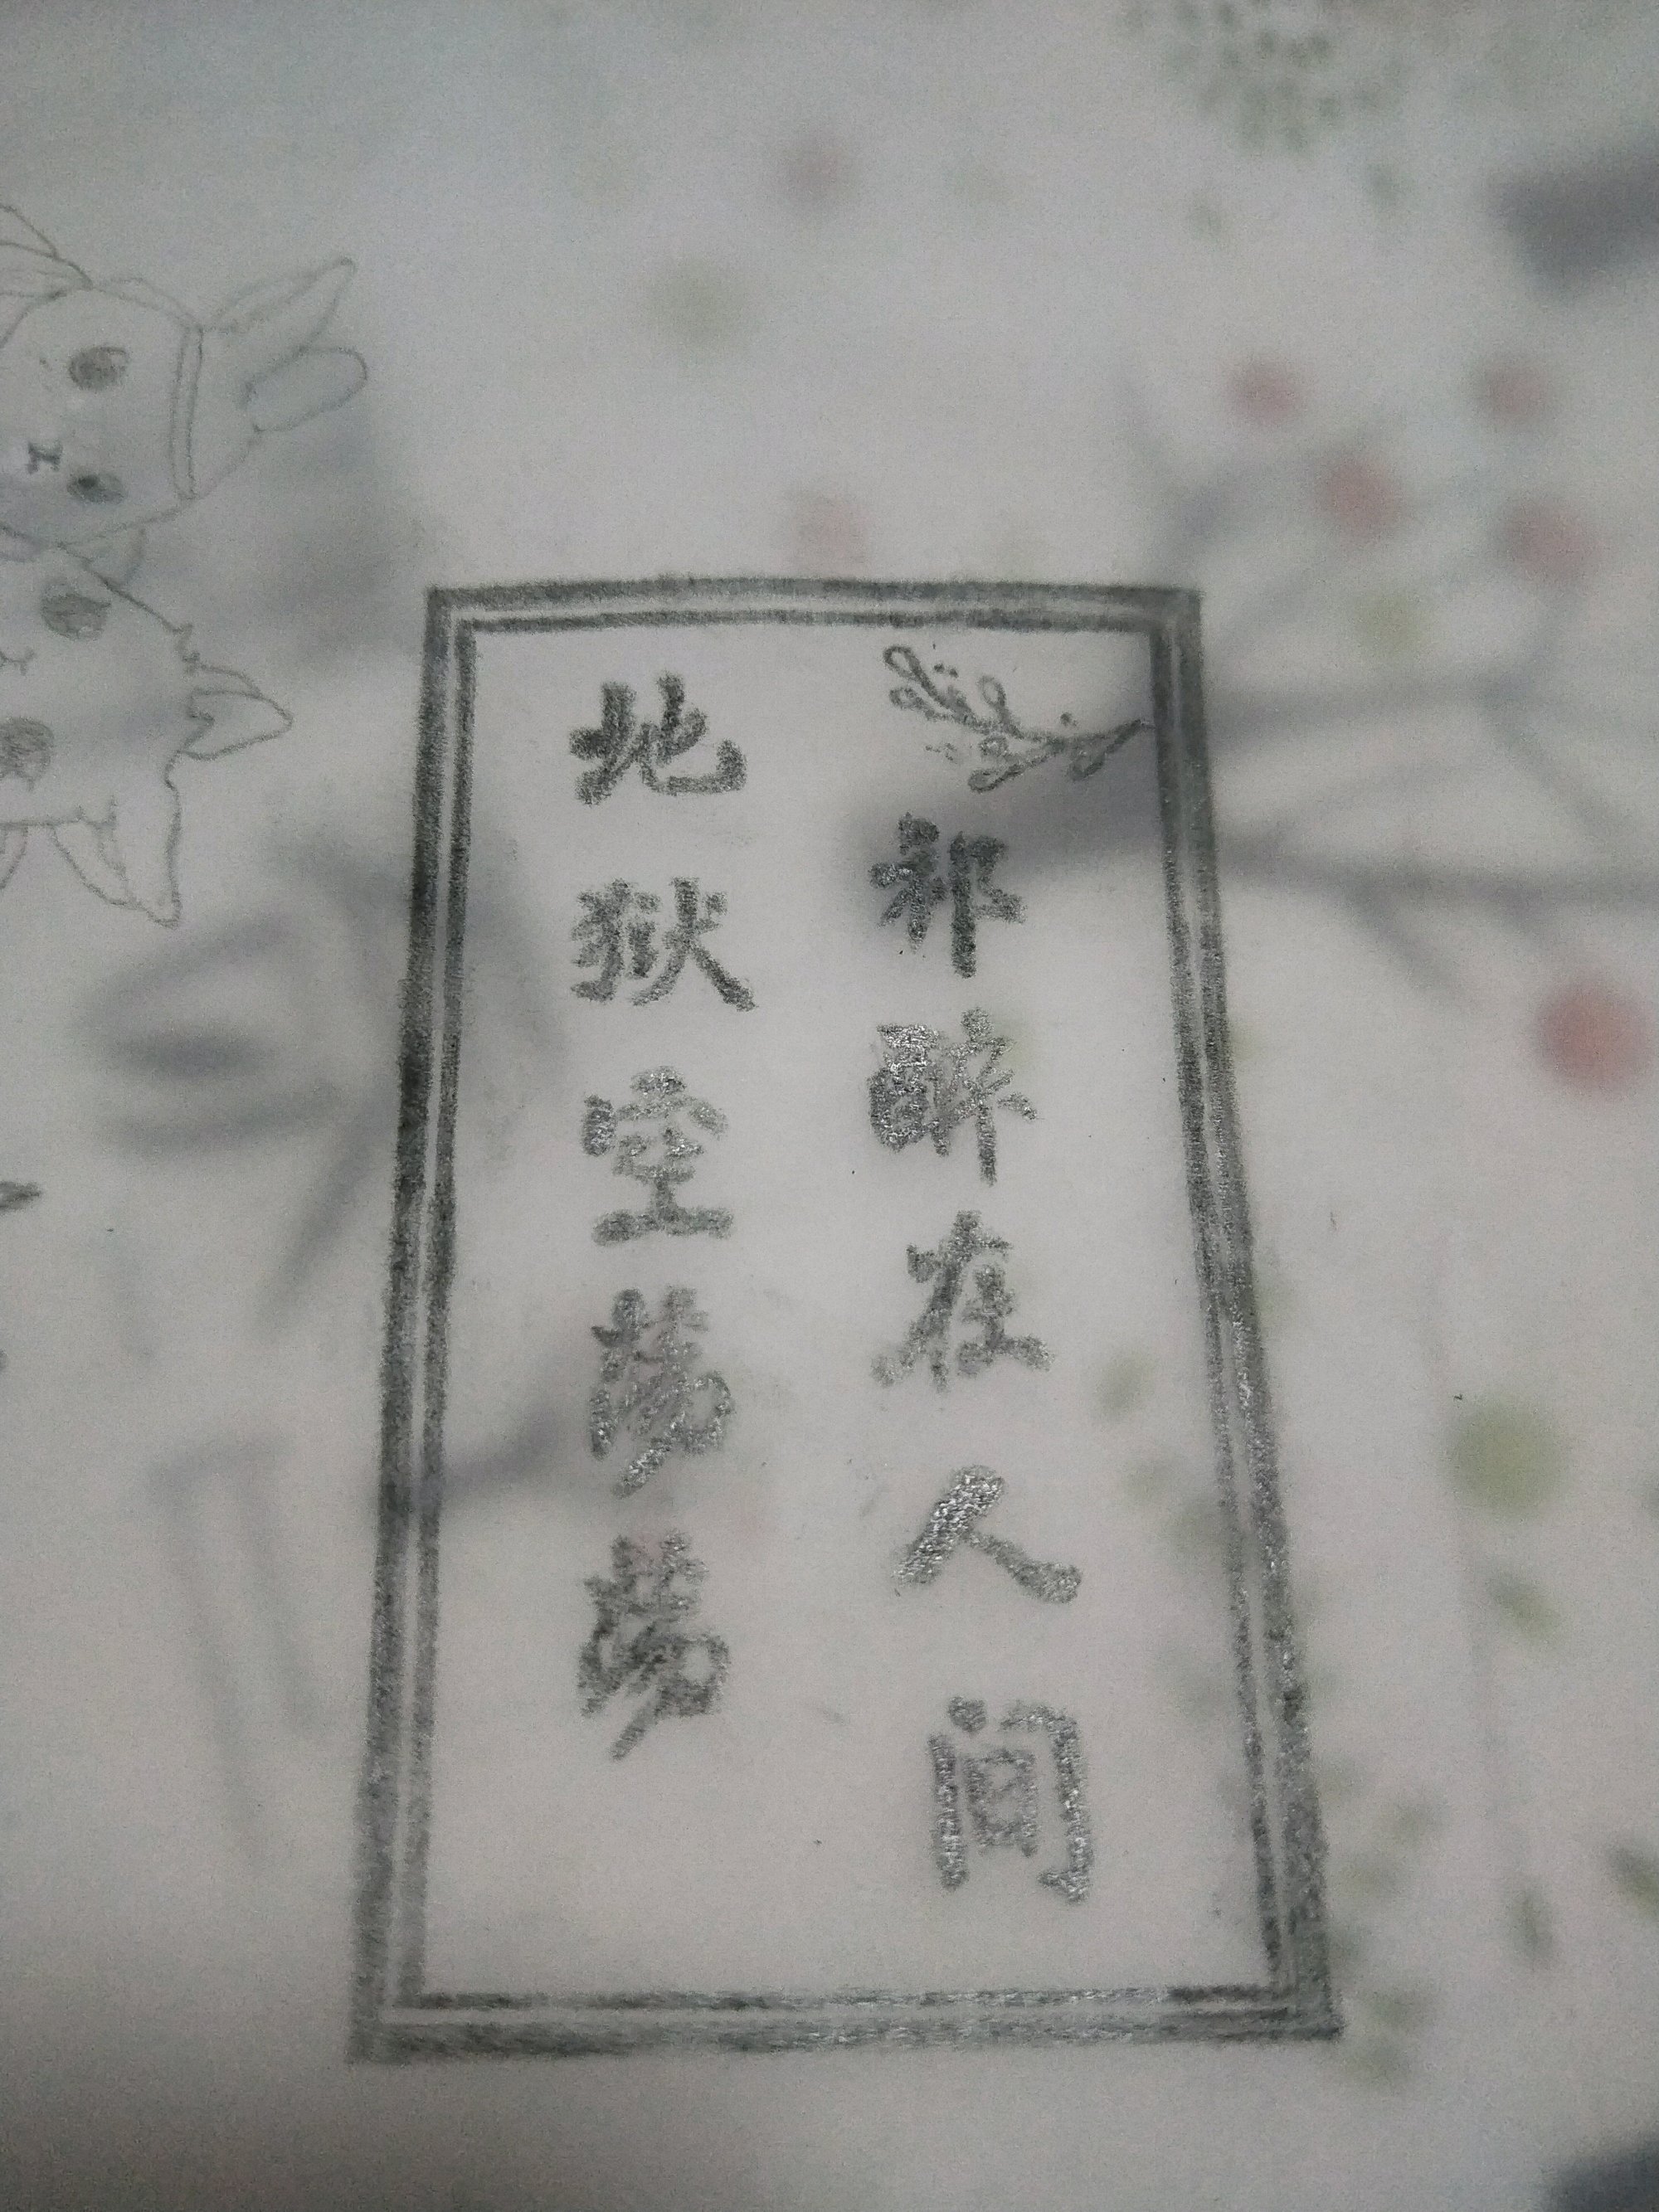 祁醉在人间
地狱空荡荡